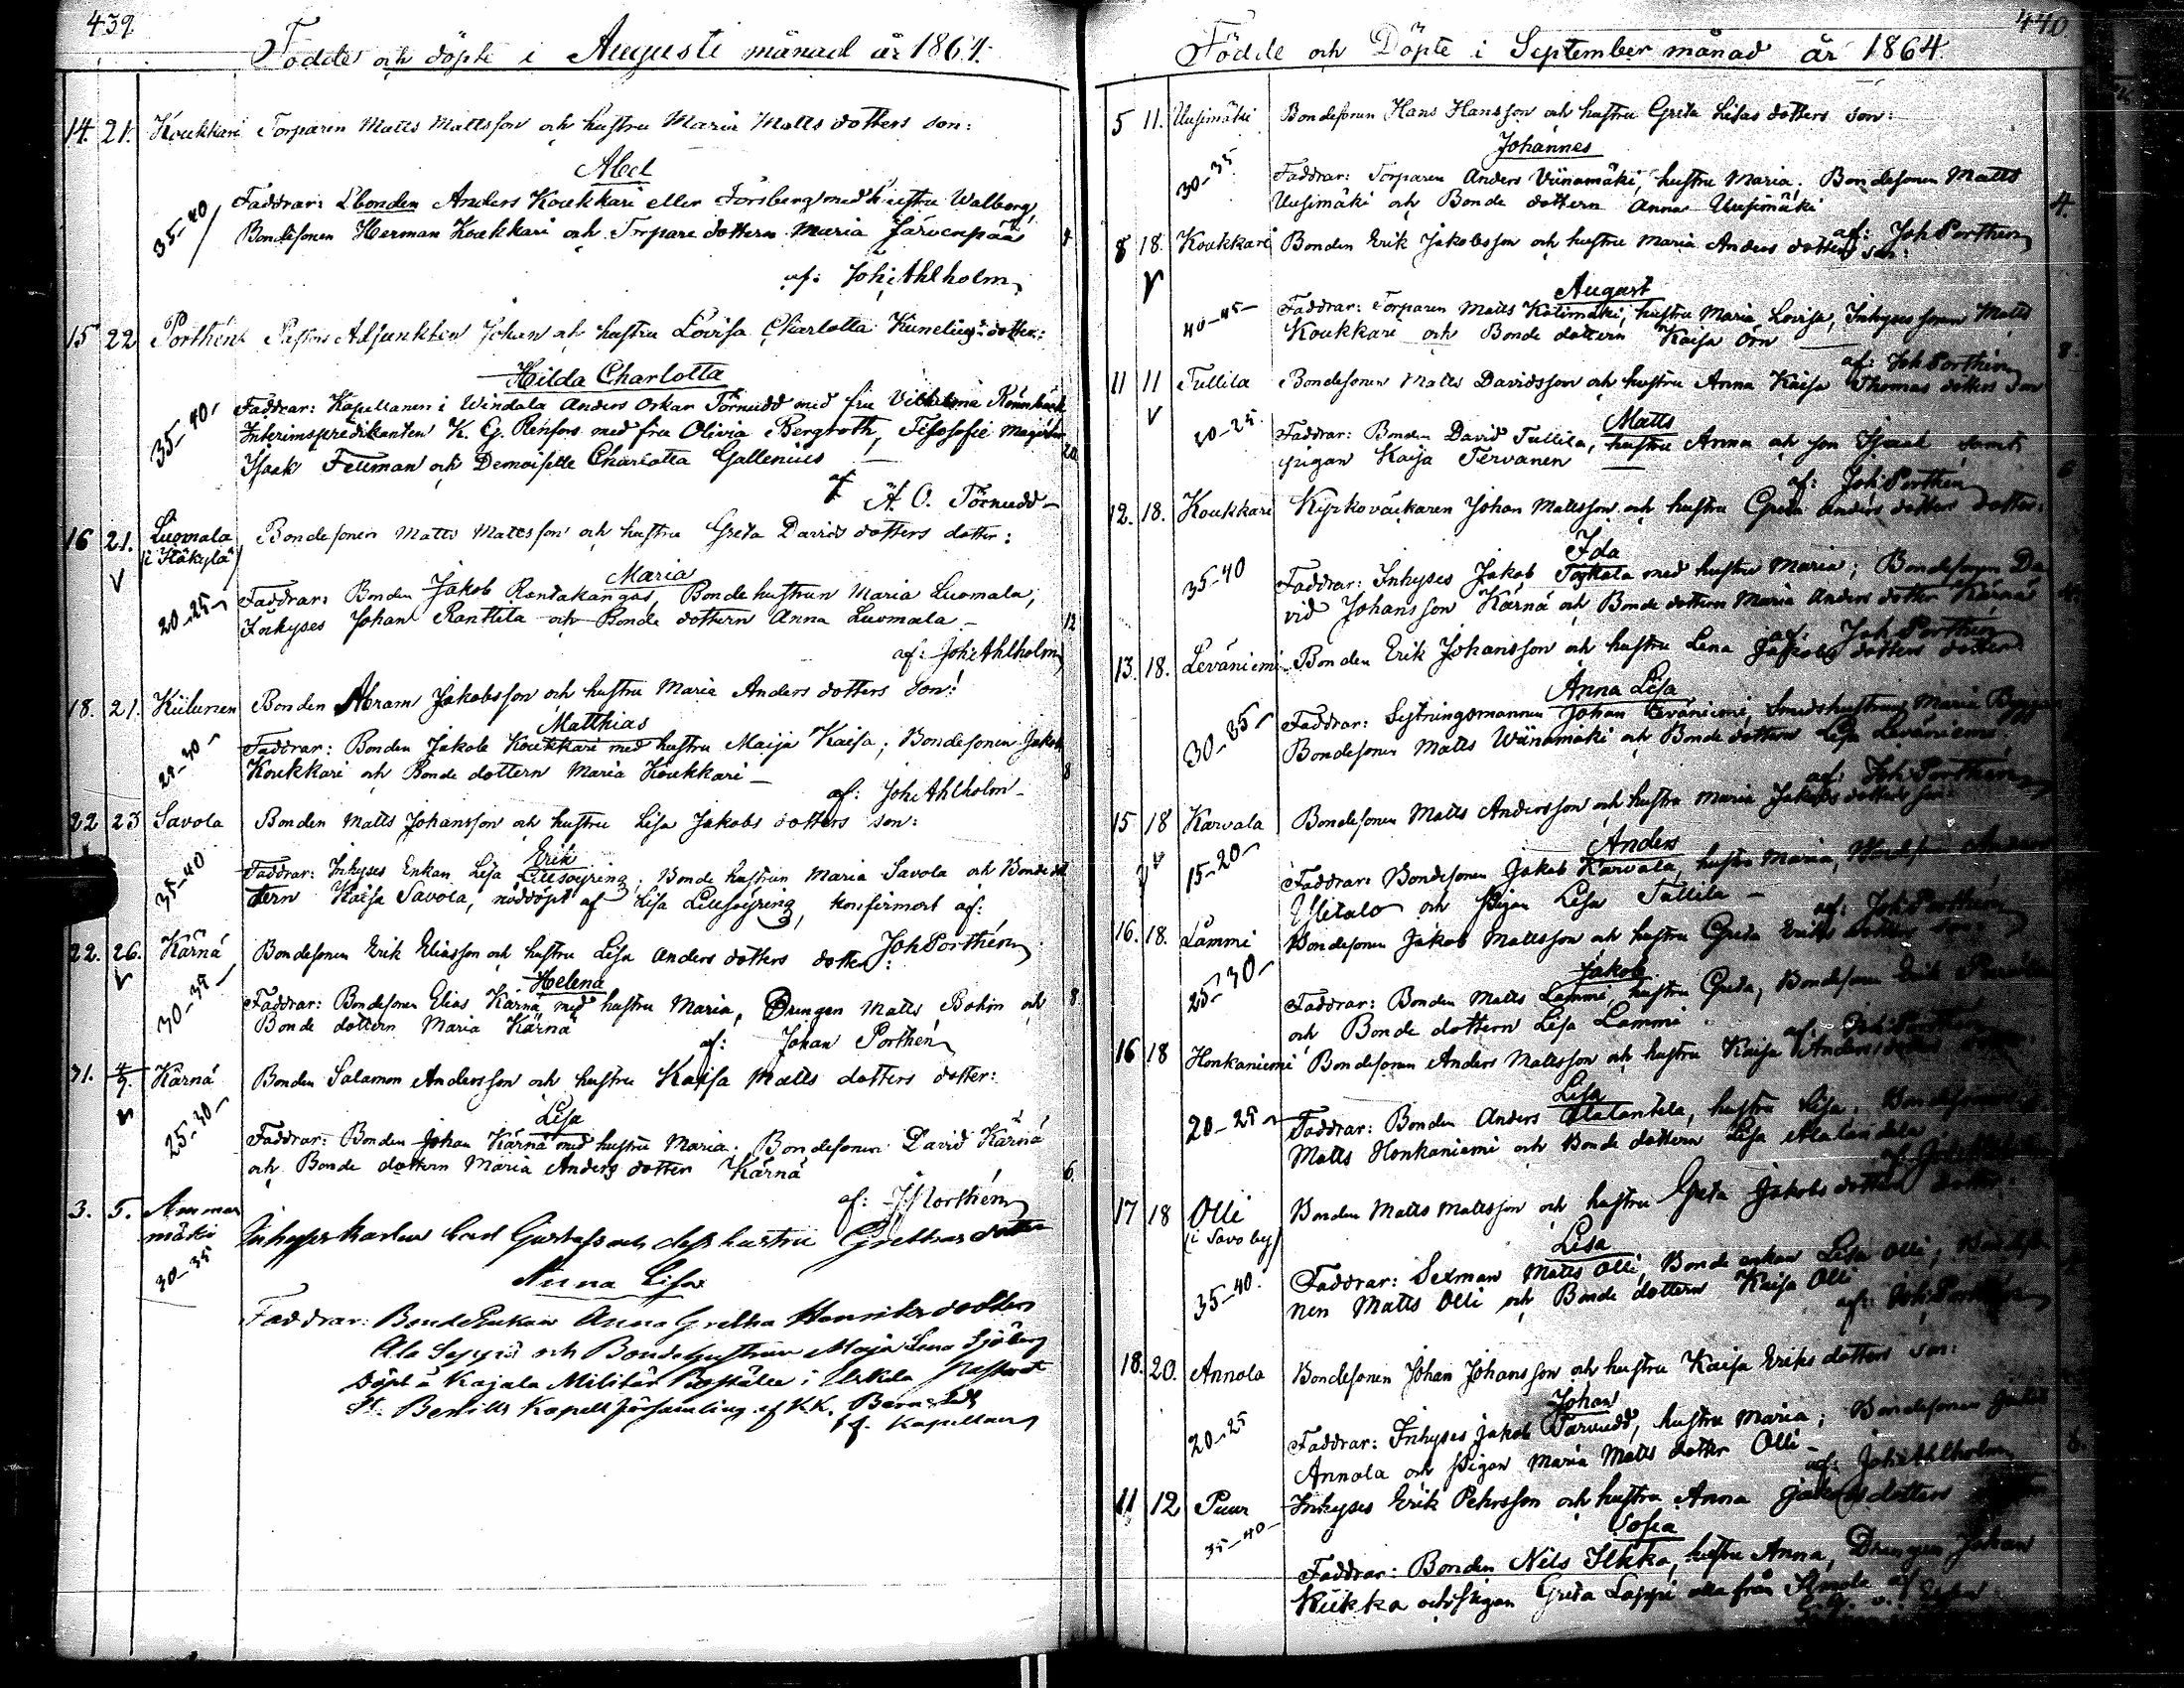 439
Födde och döpte i Augusti månad år 1864.
14. 21. Koukkari Torparen Matts Mattsson och hustru Maria Matts dotters son:
Abel
35-40
Faddrar: Ebonden Anders Koukkari eller Forsberg med hustru Walborg,
Bondesonen Herman Koukkari och Torpare dottern Maria Järvenpää
af: Joh: Ahlholm
15 22 Porthén Pastors Adjunkten Johan och hustru Lovisa Charlotta dotter:
Hilda Charlotta
35-40
Faddrar: Kapellanen i Windala Anders Oskar Törnudd med fru Vilhelmina
Interimspredikanten K. G. Renfors med fru Olivia Bergroth, Filosofie Magister
Isaak Fellman och Demoiselle Charlotta Gallenius
20
af A. O. Törnudd
16 21. Luomala Bondesonen Matts Mattsson och hustru Greta Davids dotters dotter:
Maria
20-25
Faddrar: Bonden Jakob Rantakangas, Bonde hustrun Maria Luomala,
Inhyses Johan Ranttila och Bonde dottern Anna Luomala
12
af: Joh: Ahlholm
18. 21. Kiilunen Bonden Abram Jakobsson och hustru Maria Anders dotters son:
Matthias
Faddrar: Bonden Jakob Koukkari med hustru Maija Kaisa; Bondesonen Jakob
Koukkari och Bonde dottern Maria Koukkari
8
af: Joh: Ahlholm
22 23 Savola Bonden Matts Johansson och hustru Lisa Jakobs dotters son:
Erik
35-40
Faddrar: Inhyses Enkan Lisa Lillsöyring; Bonde hustrun Maria Savola och Bonde dot
tern Kaisa Savola, nöddöpt af Lisa Lillsöyring, konfirmert af:
Joh Porthén
22. 26. Kärnä Bondesonen Erik Eliasson och hustru Lisa Anders dotters dotter:
Helena
30-35
Faddrar: Bondesonen Elias Kärnä med hustru Maria, Drengen Matts Bohm och
Bonde dottern Maria Kärnä
8.
af: Johan Porthén
31. 4/9. Kärnä Bonden Salamon Andersson och hustru Kaisa Matts dotters dotter:
Lisa
25-30
Faddrar: Bonden Johan Kärnä med hustru Maria; Bondesonen David Kärnä
och Bonde dottern Maria Anders dotter Kärnä
6.
af: J Porthén
3. 5. Ammas
mäki Inhyses karlen Carl Gustafs och dess hustru Grethas dotter
30-35
Anna Lisa
Faddrar: Bonde Enkan Anna Gretha Henriks dotter
Ala Seppä och Bondehustrun Maja Lena Sjöberg
döpt å Kajala Militär Boställe i
St. Bertills Kapellförsamling af K.K.
Kapellan
440
Födde och Döpte i September månad år 1864.
5 11. Uusimäki Bondesonen Hans Hansson och hustru Greta Lisas dotters son:
Johannes
30-35
Faddrar: Torparen Anders Viinamäki, hustru Maria; Bondesonen Matts
Uusimäki och Bonde dottern Anna Uusimäki
4.
af: Joh Porthén
8 18. Koukkari Bonden Erik Jakobsson och hustru Maria Anders dotters son:
August
40-45
Faddrar: Torparen Matts Kätimäki, hustru Maria Lovisa, Inhyses sonen Matts
Koukkari och Bonde dottern Kaisa Örn
8.
af: Joh Porthén
11 11 Tullila Bondesonen Matts Davidsson och hustru Anna Kaisa Thomas dotters son
Matts
20-25
Faddrar: Bonden David Tullila, hustru Anna och son Isaak samt
pigan Kaisa Tervanen
6
af: Joh Porthén
12. 18. Koukkari Kyrkoväktaren Johan Mattsson och hustru Greta Anders dotters dotter:
Ida
35-40
Faddrar: Inhyses Jakob med hustru Maria; Bondesonen Da
vid Johansson Kärnä och Bonde dottern Maria Anders dotter Kärnä
af: Joh Porthén
13. 18. Leväniemi Bonden Erik Johansson och hustru Lena Jakobs dotters dotter
Anna Lisa
30-35
Faddrar: Sextningsmannen Johan Leväniemi, Smedshustrun Maria
Bondesonen Matts Wiinamäki och Bonde dottern Lisa Leväniemi
af: Joh Porthén
15 18 Karvala Bondesonen Matts Andersson och hustru Maria Jakobs dotters son:
Anders
15-20
Faddrar: Bondesonen Jakob Karvala, hustru Maria,
Ylitalo och Pigan Lisa Tullila
af: Joh Porthén
16. 18. Lammi Bondesonen Jakob Mattsson och hustru Greta Eriks dotters son:
Jakob
25-30
Faddrar: Bonden Matts Lammi, hustru Greta, Bondesonen Erik
och Bonde dottern Lisa Lammi
16 18 Honkaniemi Bondesonen Anders Mattsson och hustru Kaisa Anders dotters
Lisa
20-25
Faddrar: Bonden Anders Alatantela, hustru Lisa, Bondesonen
Matts Honkaniemi och Bonde dottern Lisa
17 18 Olli Bonden Matts Mattsson och hustru Greta Jakobs dotters dotter:
(i Savoby)
Lisa
35-40.
Faddrar: Sexman Matts Olli, Bonde enkan Lisa Olli, Bondeso
nen Matts Olli och Bonde dottern Kaisa Olli
af: Joh Porthén
18. 20. Annola Bondesonen Johan Johansson och hustru Kaisa Eriks dotters son:
Johan
20-25
Faddrar: Inhyses Jakob hustru Maria; Bondesonen Jakob
Annola och Pigan Maria Matts dotter Olli
6.
af: Joh: Ahlholm
11 12 Puur Inhyses Erik Pehrsson och hustru Anna Jakobs dotters
Sofia
35-40
Faddrar: Bonden Nils Ilkka, hustru Anna, Drengen Johan
Kiikka och Pigan Greta Lappi alla från